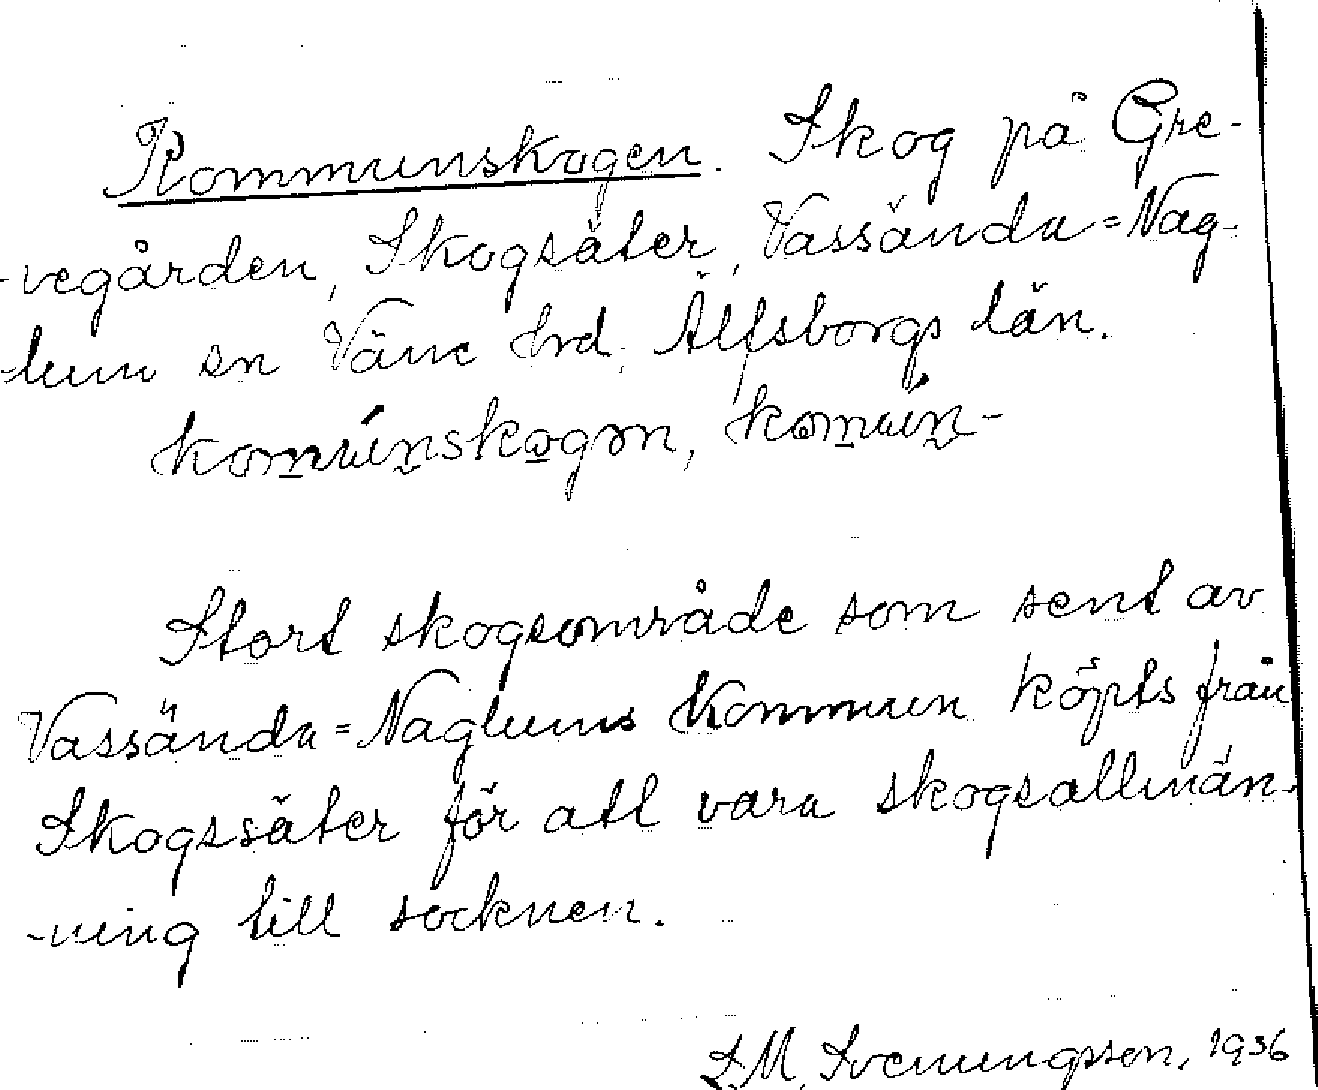 Kommunskogen. Skog på Gre-
-vegården, Skogsäter, Vassända=Nag-
lum sn Väne hrd, Älfsborgs län.
komúnskogən, komún-
Stort skogsområde som sent av
Vassända=Naglums kommun köpts från
Skogssäter för att vara skogsallmän-
-ning till socknen.
S.M. Svenungsson, 1936